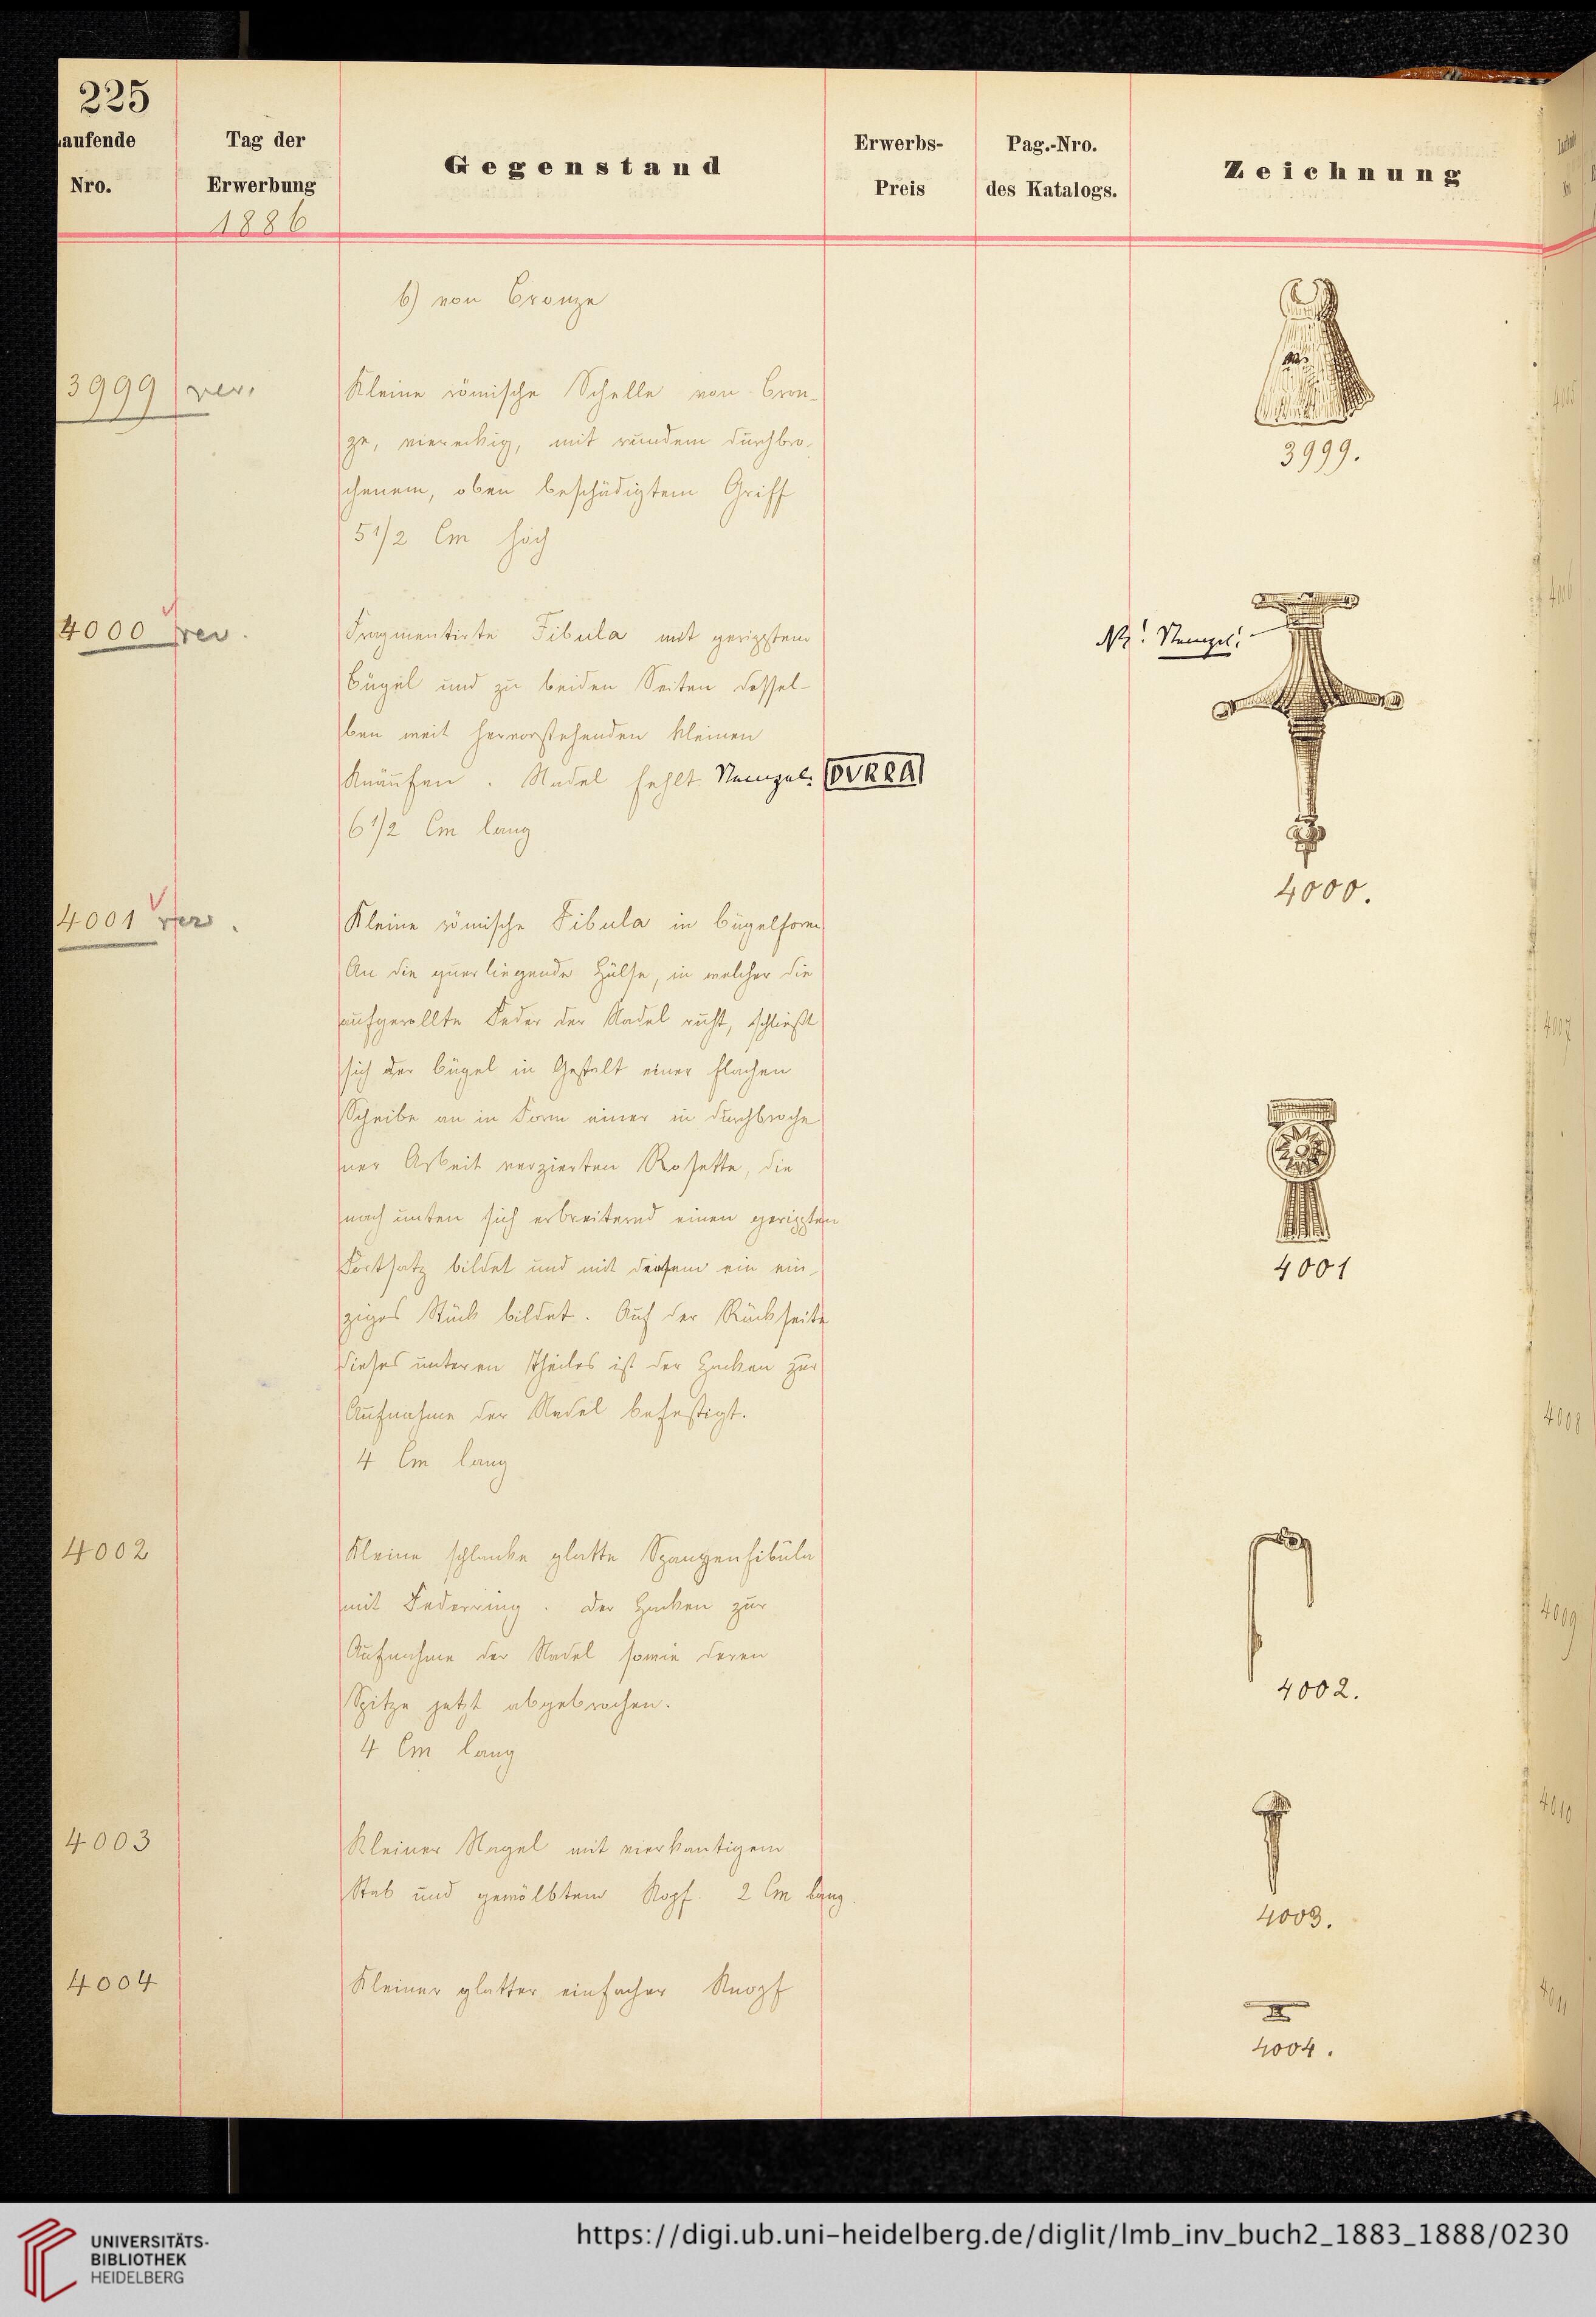 225
aufende
Nro.
Tag der
Erwerbung
1886
Gegenstand
Erwerbs-
Preis
Pag.-Nro.
des Katalogs.
Zeichnung
b) von Bronze
3999 ver.
Kleine römische Schelle von Bron-
ze, viereckig, mit rundem durchbro-
chenem, oben beschädigtem Griff
5 1/2 Cm hoch
3999.
4000 rev.
Fragmentirte Fibula mit geripptem
Bügel und zu beiden Seiten dessel-
ben weit hervorstehenden kleinen
Knäufen. Nadel fehlt. Stempel:
6 1/2 Cm lang
Stempel:
4000.
4001 ver.
Kleine römische Fibula in Bügelform
An die querliegende Hülse, in welcher die
aufgerollte Feder der Nadel ruht, schließt
sich der Bügel in Gestalt einer flachen
Scheibe an in Form einer in durchbroche
ner Arbeit verzierten Rosette, die
nach unten sich erbreiternd einen gerippten
Fortsatz bildet und mit diesem ein ein-
ziges Stück bildet. Auf der Rückseite
dieses unteren Theiles ist der Hacken zur
Aufnahme der Nadel befestigt.
4 Cm lang
4001
4002
Kleine schlanke glatte Spangenfibula
mit Federring. Der Hacken zur
Aufnahme der Nadel sowie deren
Spitze jetzt abgebrochen.
4 Cm lang
4002.
4003
Kleiner Nagel mit vierkantigem
Stab und gewölbtem Kopf. 2 Cm lang.
4003.
4004
Kleiner glatter einfacher Knopf
4004.
UNIVERSITÄTS-
BIBLIOTHEK
HEIDELBERG
https://digi.ub.uni-heidelberg.de/diglit/lmb_inv_buch2_1883_1888/0230